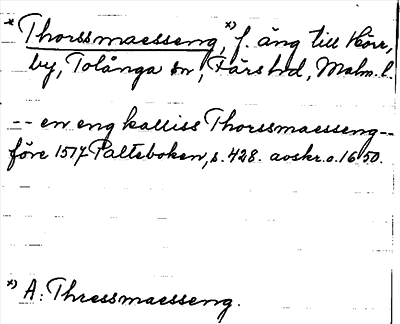 * Thorssmaesseng, *) f. äng till Hörr,
by, Tolånga sn, Färs hd, Malm. l.
-- en eng kalliss Thorssmaesseng --
före 1517 Palteboken, s. 428. avskr. o. 1650.
*) A: Thressmaesseng.